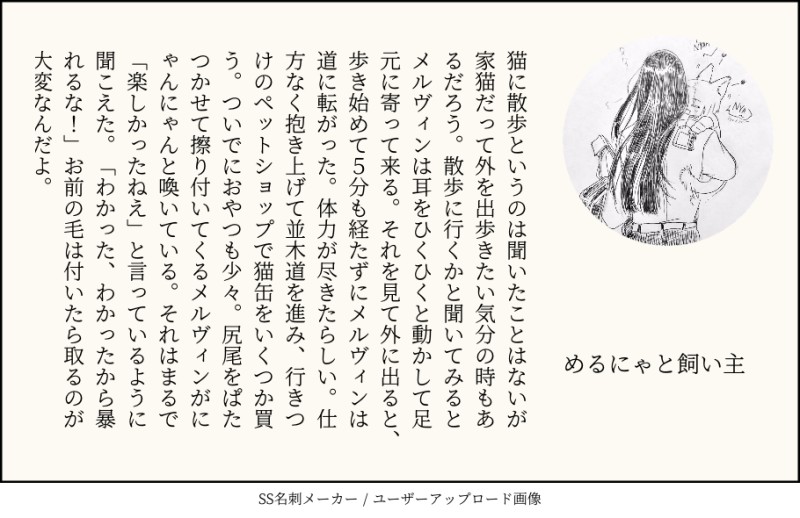 猫に散歩というのは聞いたことはないが
家猫だって外を出歩きたい気分の時もあ
るだろう。散歩に行くかと聞いてみると
メルヴィンは耳をひくひくと動かして足
元に寄って来る。それを見て外に出ると、
歩き始めて5分も経たずにメルヴィンは
道に転がった。体力が尽きたらしい。仕
方なく抱き上げて並木道を進み、行きつ
けのペットショップで猫缶をいくつか買
う。ついでにおやつも少々。尻尾をぱた
つかせて擦り付いてくるメルヴィンがに
ゃんにゃんと喚いている。それはまるで
「楽しかったねえ」と言っているように
聞こえた。「わかった、わかったから暴
れるな！」お前の毛は付いたら取るのが
大変なんだよ。
めるにゃと飼い主
SS名刺メーカー / ユーザーアップロード画像